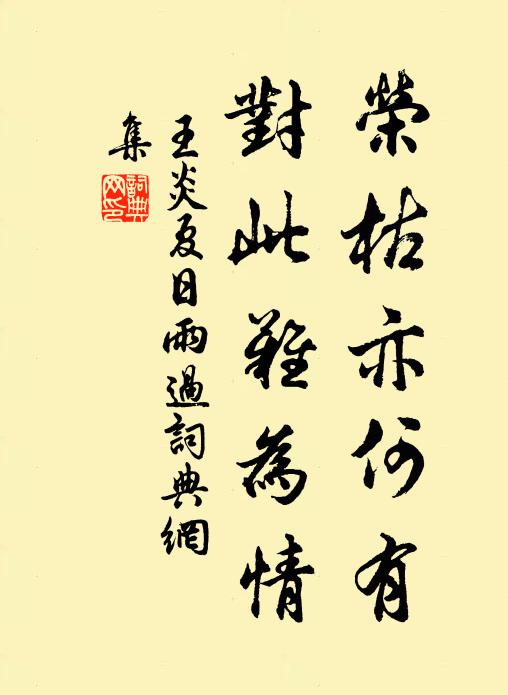 榮枯亦何有
對此難為情
王炎夏日雨過詞典網
集
詞典網印